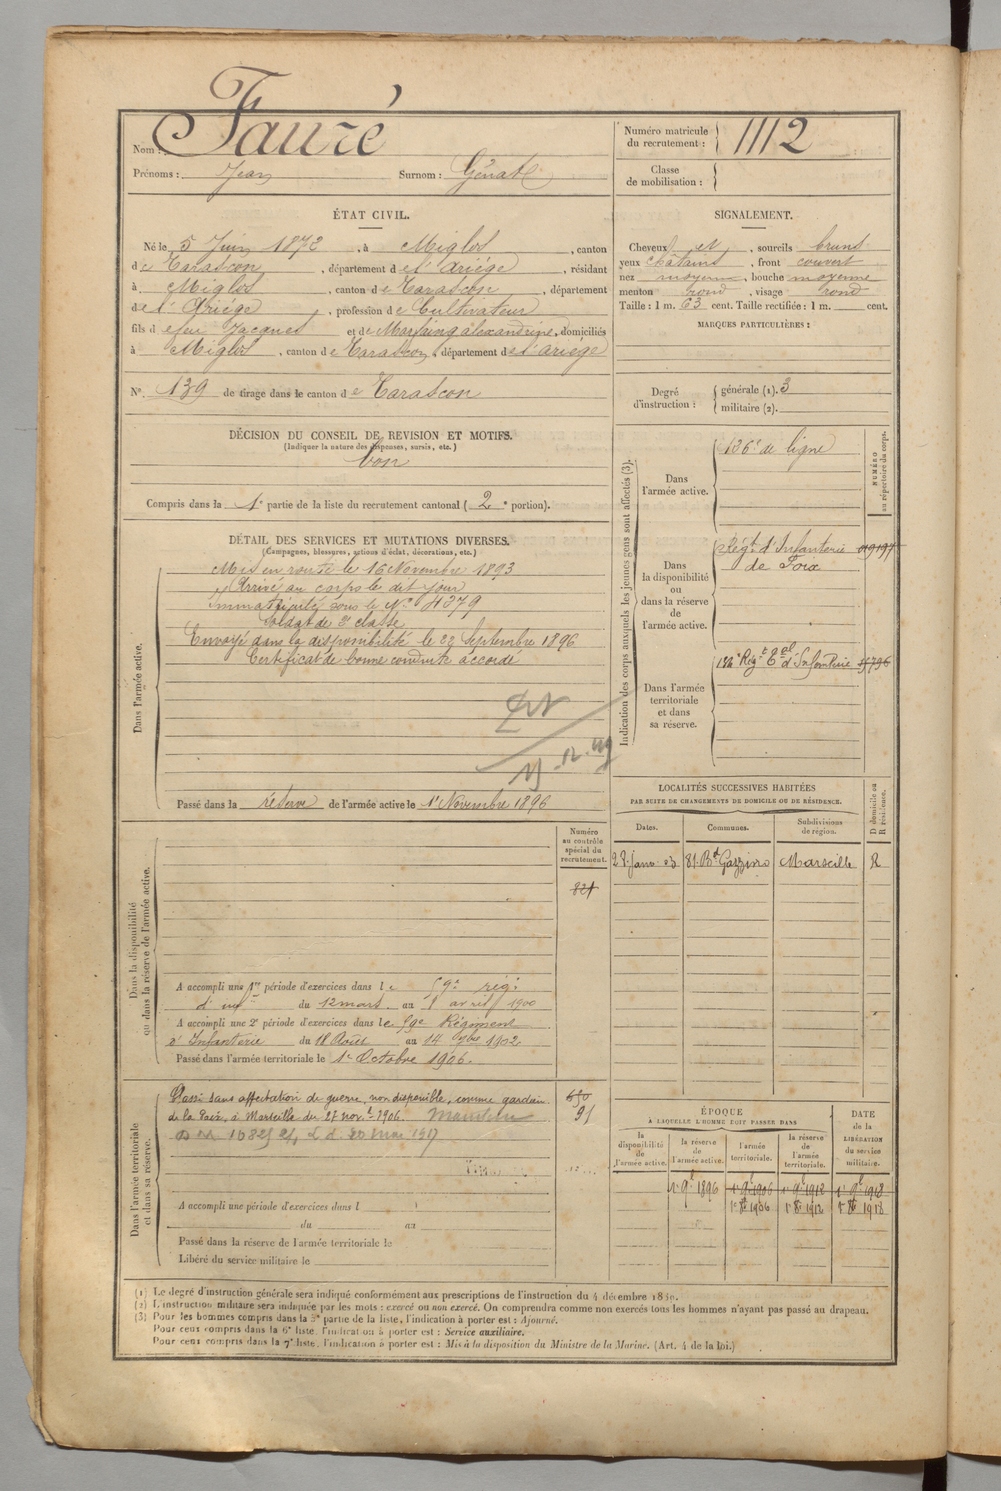 Nom : Fauré
Prénoms : Jean Surnom : Génat
Numéro matricule du recrutement : 1112
Classe de mobilisation :
ÉTAT CIVIL.
Né le 5 Juin 1872, à Miglos, canton
de Tarascon, département de l'Ariége, résidant
à Miglos, canton de Tarascon, département
de l'Ariége, profession de Cultivateur
fils d efeu Jacques et de Marfaing alexandrine, domiciliés
à Miglos, canton de Tarascon, département de l'ariége
N° 139 de tirage dans le canton de Tarascon
SIGNALEMENT.
Cheveux et, sourcils bruns
yeux châtains, front couvert
nez moyen, bouche moyenne
menton rond, visage rond
Taille : 1 m. 63 cent. Taille rectifiée : 1 m. cent.
MARQUES PARTICULIÈRES :
Degré d'instruction : générale (1). 3
militaire (2).
DÉCISION DU CONSEIL DE REVISION ET MOTIFS.
(Indiquer la nature des dispenses, sursis, etc.)
bon
Compris dans la 1e partie de la liste du recrutement cantonal (2e portion).
DÉTAIL DES SERVICES ET MUTATIONS DIVERSES.
(Campagnes, blessures, actions d'éclat, décorations, etc.)
Dans l'armée active.
Mis en route le 16 Novembre 1893
Arrivé au corps le dit jour
Immatriculé sous le N° 4379
Soldat de 2e classe
Envoyé dans la disponibilité le 22 Septembre 1896
Certificat de bonne conduite accordé
Passé dans la réserve de l'armée active le 1er Novembre 1896
Indication des corps auxquels les jeunes gens sont affectés (3).
NUMÉRO au répertoire du corps.
Dans l'armée active.
136e de ligne
Dans la disponibilité ou dans la réserve de l'armée active.
Régt d'Infanterie
de Foix
Dans l'armée territoriale et dans sa réserve.
134e Régt Tal d'Infanterie
LOCALITÉS SUCCESSIVES HABITÉES
PAR SUITE DE CHANGEMENTS DE DOMICILE OU DE RÉSIDENCE.
Dates. Communes. Subdivisions de région. D domicile ou R résidence.
81 Bd Gazzino Marseille R
Dans la disponibilité ou dans la réserve de l'armée active.
Numéro au contrôle spécial du recrutement.
821
A accompli une 1re période d'exercices dans le 59e rég.
d'inf du 12 mars au 8 avril 1900
A accompli une 2e période d'exercices dans le 59e Régiment
d'Infanterie du 18 Août au 14 7bre 1902
Passé dans l'armée territoriale le 1er Octobre 1906.
Dans l'armée territoriale et dans sa réserve.
Classé sans affectation de guerre, non disponible, comme gardien
de la Paix, à Marseille du 27 novt 1906.
650
91
A accompli une période d'exercices dans l
du au
Passé dans la réserve de l'armée territoriale le
Libéré du service militaire le
ÉPOQUE
À LAQUELLE L'HOMME DOIT PASSER DANS
la disponibilité de l'armée active. la réserve de l'armée active. l'armée territoriale. la réserve de l'armée territoriale.
DATE de la LIBÉRATION du service militaire.
1er 9e 1896 1er 9e 1906 1er 9e 1912 1er 9e 1918
1er 8e 1906 1er 8e 1912 1er 8e 1918
(1) Le degré d'instruction générale sera indiqué conformément aux prescriptions de l'instruction du 4 décembre 1889.
(2) L'instruction militaire sera indiquée par les mots : exercé ou non exercé. On comprendra comme non exercés tous les hommes n'ayant pas passé au drapeau.
(3) Pour les hommes compris dans la 5e partie de la liste, l'indication à porter est : Ajourné.
Pour ceux compris dans la 6e liste, l'indication à porter est : Service auxiliaire.
Pour ceux compris dans la 7e liste, l'indication à porter est : Mis à la disposition du Ministre de la Marine. (Art. 4 de la loi.)